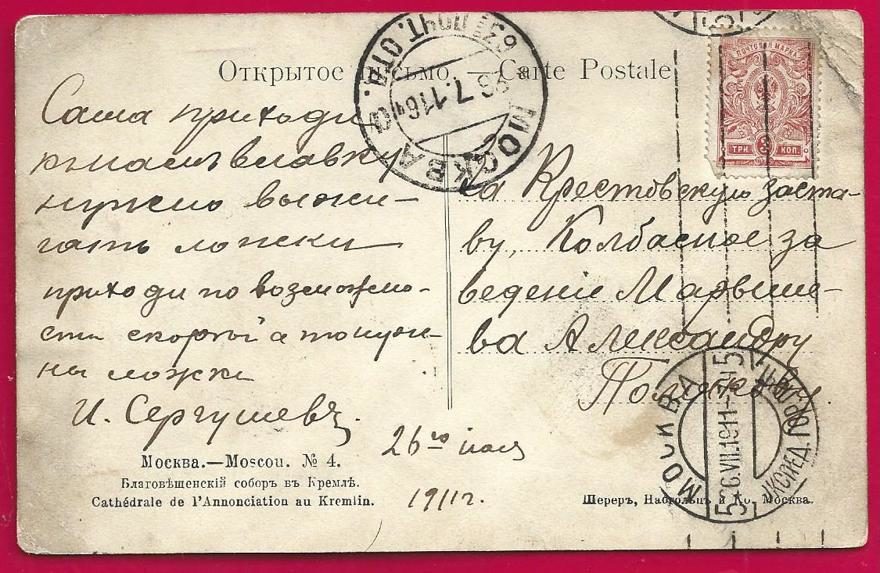 Открытое письмо. — Carte Postale
63 ГОР. ПОЧТ. ОТД.
26.7.11
МОСКВА
ПОЧТОВАЯ МАРКА
ТРИ 3 КОП.
Саша приходи
к нам в лавку
нужно выжи-
гать ложки
приходи по возможно-
сти скорѣй а то нуж-
ны ложки
И. Сергушевъ.
26го июля
1911 г.
За Крестовскую заста-
ву, Колбасное за
ведені Марыше-
ва Александру
МОСКВА
26.VII.1911
ЭКСПЕД. ГОР. ПОЧТ.
Москва.—Moscou. № 4.
Благовѣщенскій соборъ въ Кремлѣ.
Cathédrale de l'Annonciation au Kremlin.
Шереръ, Набгольцъ и Ко. Москва.